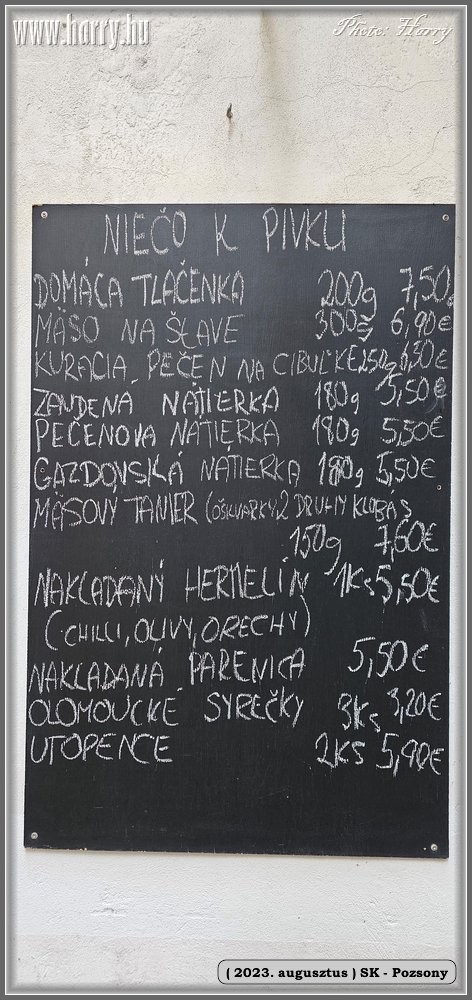 www.harry.hu
Photo: Harry
NIEČO K PIVKU
DOMÁCA TLAČENKA 200g 7,50
MÄSO NA ŠŤAVE 300g 6,90€
KURACIA PEČEŇ NA CIBUĽKE 250g 6,30€
ZAUDENÁ NÁTIERKA 180g 5,50€
PEČEŇOVÁ NÁTIERKA 180g 5,50€
GAZDOVSKÁ NÁTIERKA 180g 5,50€
MÄSOVÝ TANIER (OŠKVARKY, 2 DRUHY KLOBÁS
150g 7,60€
NAKLADANÝ HERMELÍN 1Ks 5,50€
(CHILLI, OLIVY, ORECHY)
NAKLADANÁ PARENICA 5,50€
OLOMOUCKÉ SYREČKY 3Ks 3,20€
UTOPENCE 2KS 5,90€
( 2023. augusztus ) SK - Pozsony